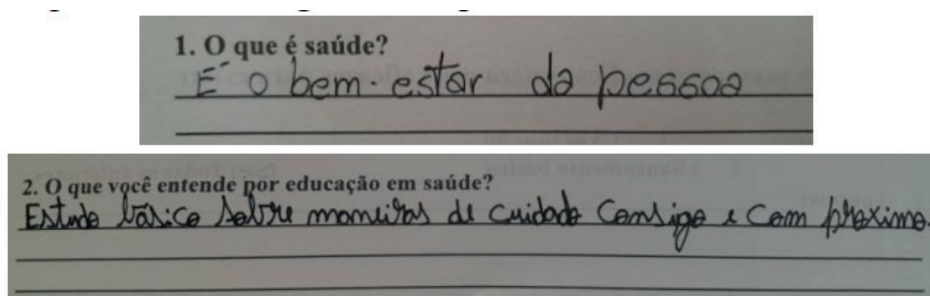 1. O que é saúde?
É o bem-estar da pessoa
2. O que você entende por educação em saúde?
Estudo básico sobre maneiras de cuidado consigo e com proximo.